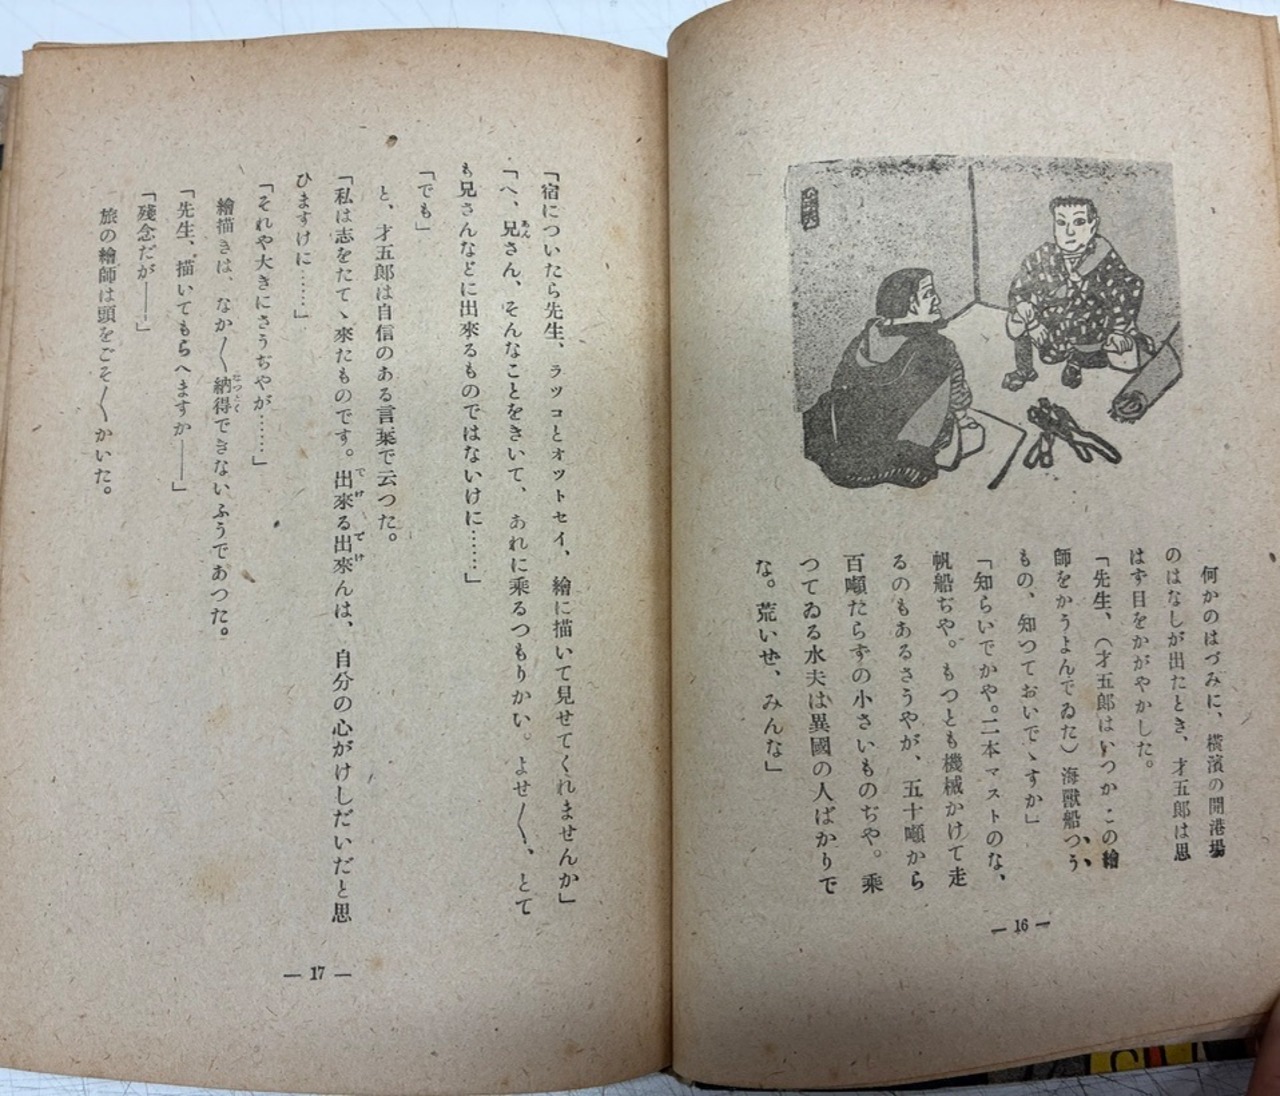 何かのはづみに、橫濱の開港場
のはなしが出たとき、才五郎は思
はず目をかがやかした。
「先生、（才五郎はいつかこの繪
師をかうよんでゐた）海獸船つう、
もの、知つておいでゝすか」
「知らいでかや。二本マストのな、
帆船ぢや。もつとも機械かけて走
るのもあるさうやが、五十噸から
百噸たらずの小さいものぢや。乘
つてゐる水夫は異國の人ばかりで
な。荒いせ、みんな」
— 16 —
「宿についたら先生、ラツコとオツトセイ、繪に描いて見せてくれませんか」
「へ、兄さん、そんなことをきいて、あれに乘るつもりかい。よせ〱、とて
あん
も兄さんなどに出來るものではないけに……」
「でも」
と、才五郎は自信のある言葉で云つた。
「私は志をたてゝ來たものです。出來る出來んは、自分の心がけしだいだと思
でけ でけ
ひますけに……」
「それや大きにさうぢやが……」
繪描きは、なか〱納得できないふうであつた。
なつとく
「先生、描いてもらへますか――」
「殘念だが――」
旅の繪師は頭をごそ〱かいた。
— 17 —